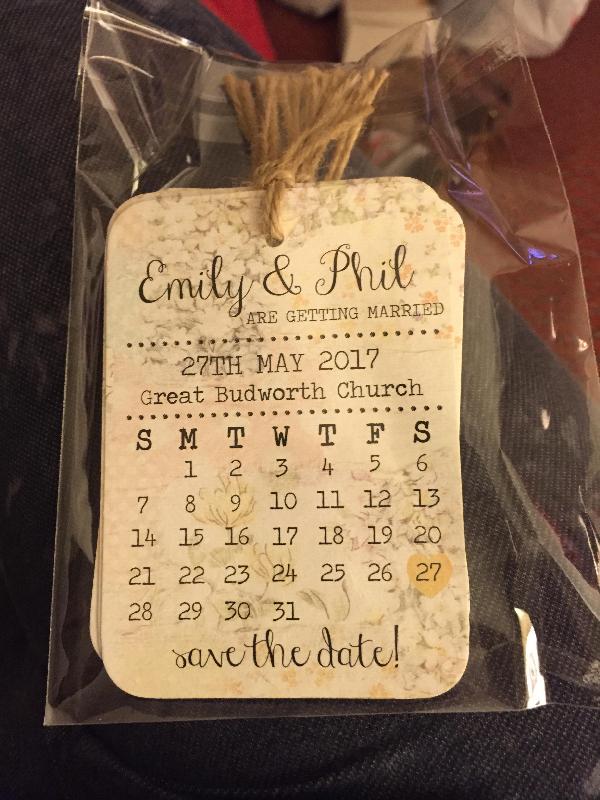 Emily & Phil
ARE GETTING MARRIED
27TH MAY 2017
Great Budworth Church
S M T W T F S
1 2 3 4 5 6
7 8 9 10 11 12 13
14 15 16 17 18 19 20
21 22 23 24 25 26 27
28 29 30 31
save the date!